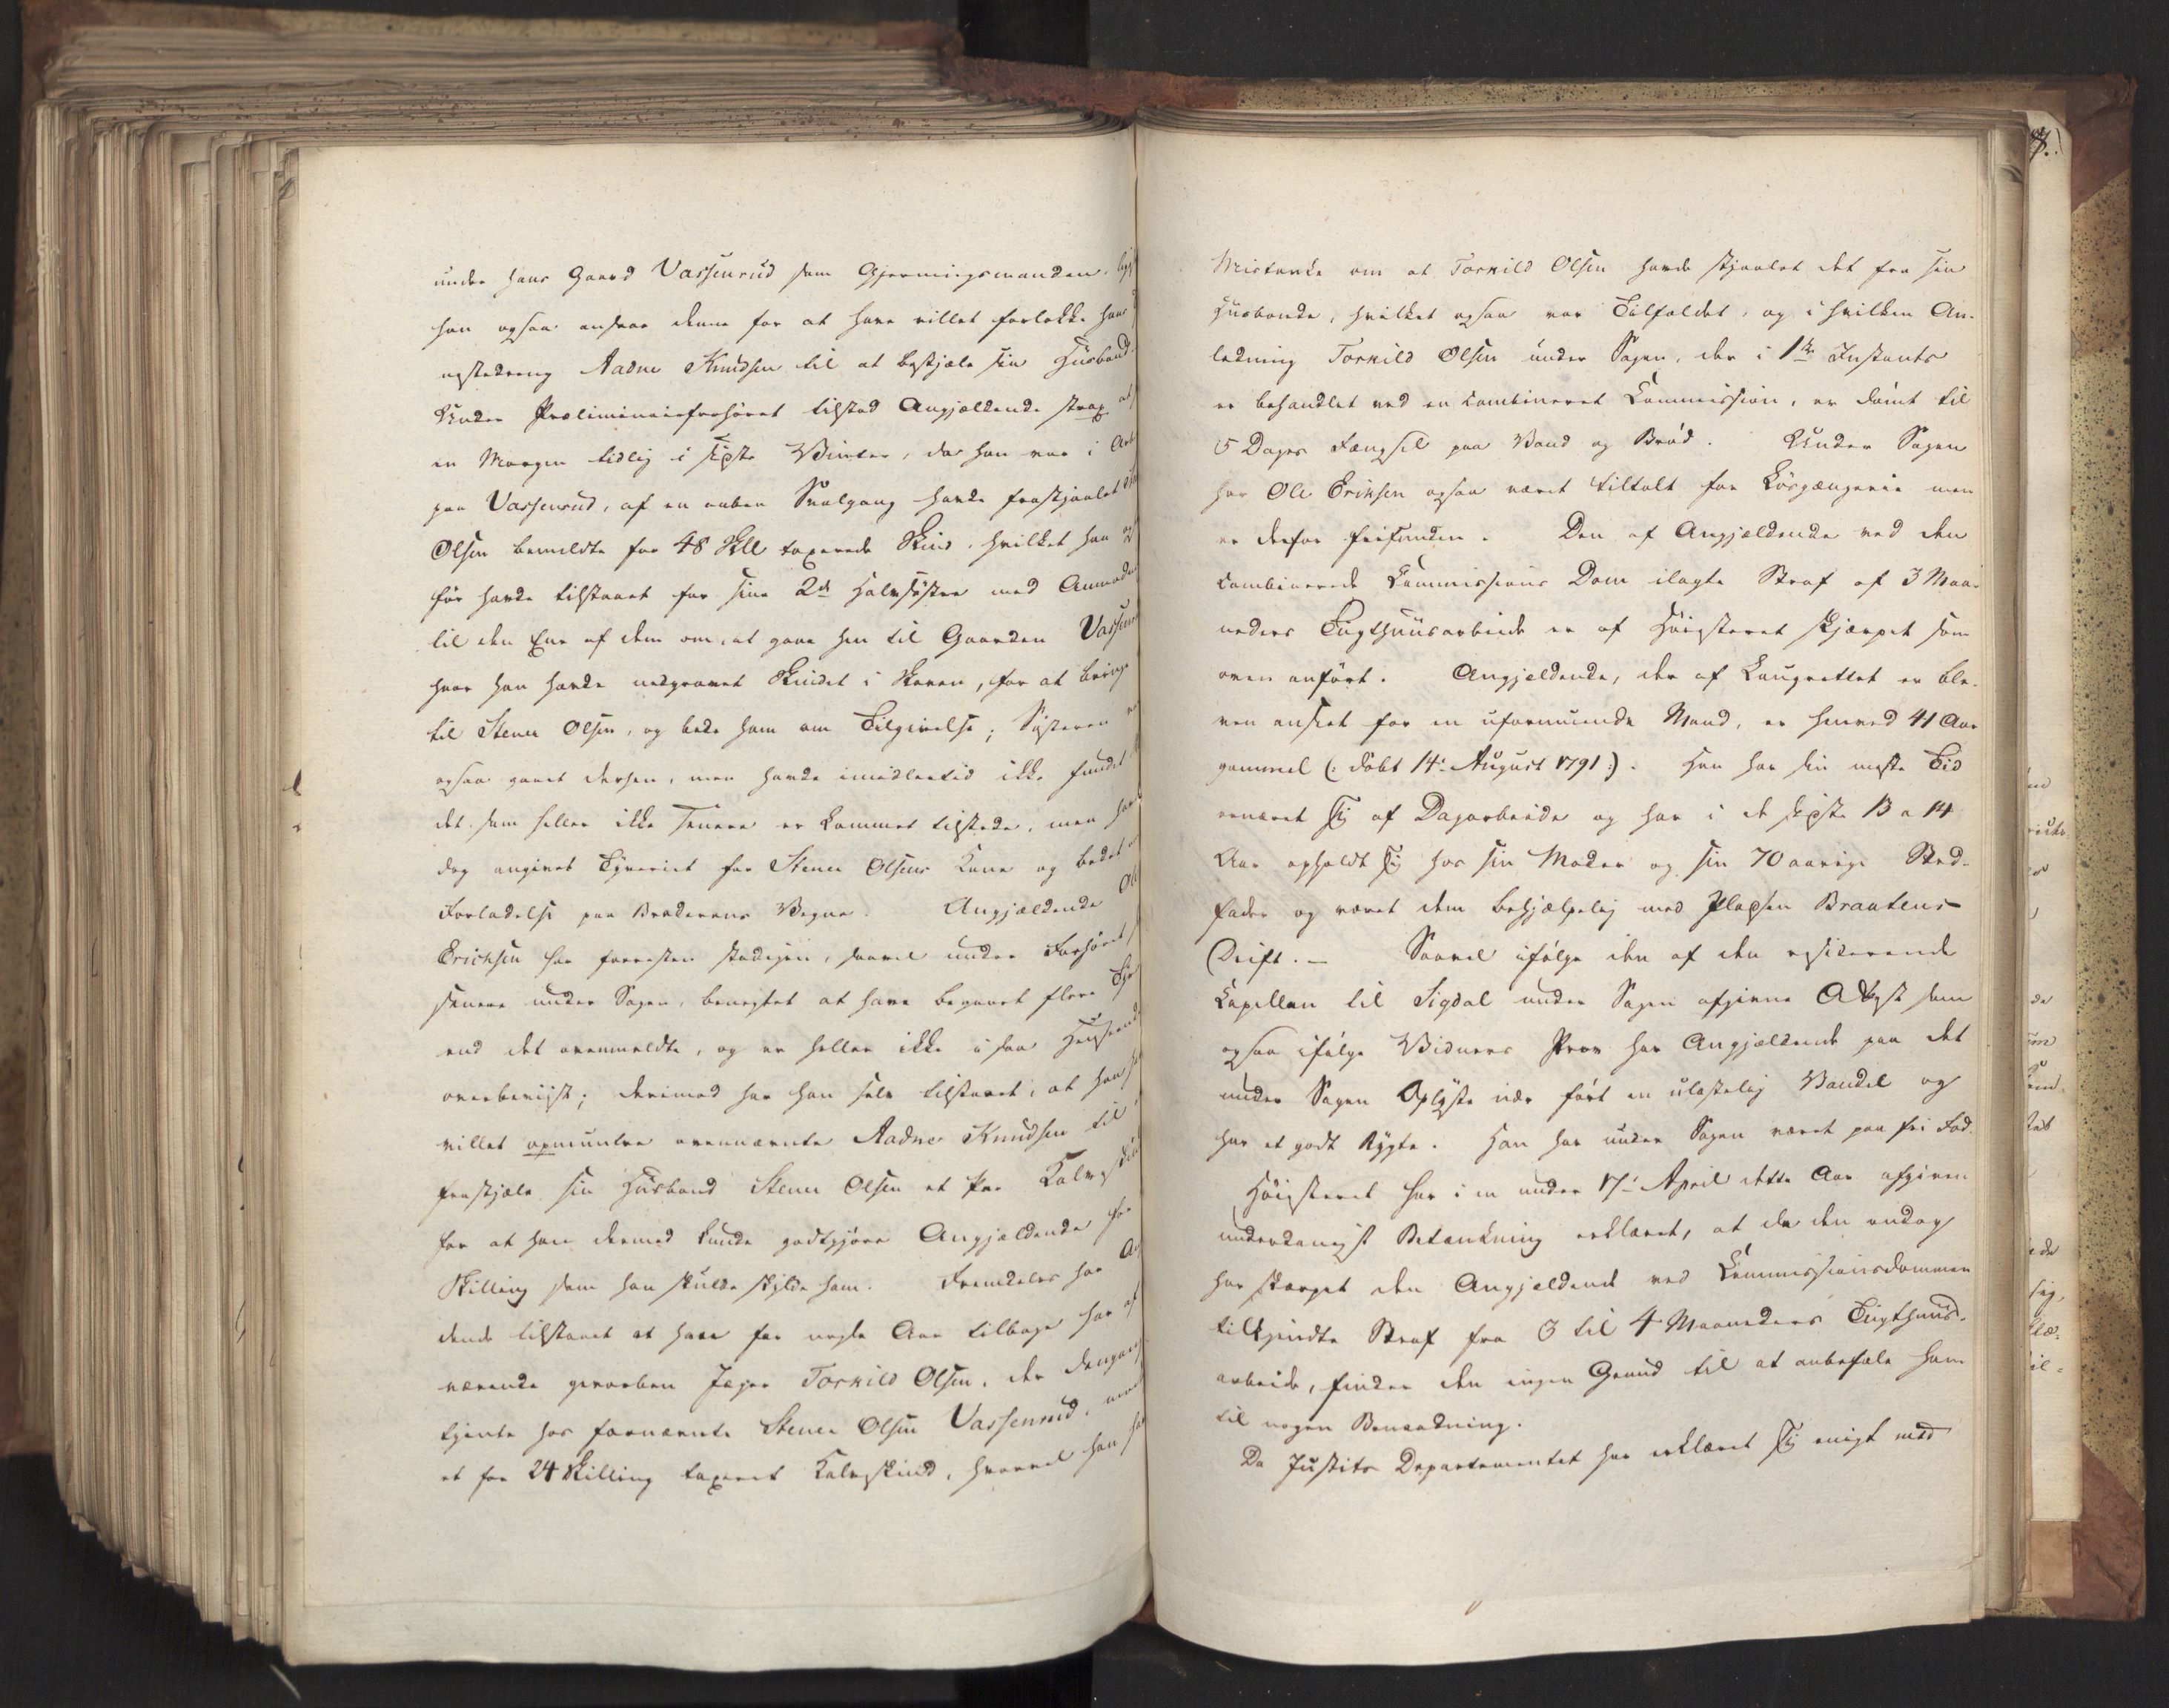 under hans Gaard Vassenrud som Gjerningsmanden, lige
han ogsaa ansaae denne for at have villet forlokke hans
Aadne Knudsen til at bestjæle sin Husbond.
Under Præliminairforhøret tilstod Angjældende strax at
en Morgen tidlig i sidste Vinter, da han var i Arb
paa Vassenrud, af en aaben Svalgang havde frastjaalet Ste
Olsen bemeldte for 48 Skll taxerede Skind, hvilket han og
før havde tilstaaet for sine 2de Halvsøstre med Anmodn
til den Ene af dem om, at gaae hen til Gaarden Vassenr
hvor han havde nedgravet Skindet i Skoven, for at bringe
til Stener Olsen, og bede ham om Tilgivelse; Søsteren
ogsaa gaaet derhen, men havde imidlertid ikke fundet
det, som heller ikke senere er kommet tilstede, men har
dog angivet Tyveriet for Stener Olsens Kone og bedet
Forladelse paa Broderens Vegne. Angjældende Ole
Erichsen har forresten stadigen, saavel under Forhøret
senere under Sagen, benegtet at have begaaet flere Tyv
end det ovenmeldte, og er heller ikke i saa Henseende
overbeviist; derimod har han selv tilstaaet, at han
villet opmuntre ovennævnte Aadne Knudsen til
frastjæle sin Husbond Stener Olsen et Par Kalvskin
for at han dermed kunde godtgjøre Angjældende
Skilling som han skulde skylde ham. Fremdeles har An
dende tilstaaet at have for nogle Aar tilbage har af
værende gevorben Jæger Torkild Olsen, der dengang
tjente hos fornævnte Stener Olsen Vassenrud,
et for 24 Skilling taxeret Kalvskind, hvorvel han
Mistanke om at Torkild Olsen havde stjaalet det fra sin
Husbonde, hvilket ogsaa var Tilfældet, og i hvilken An-
ledning Torkild Olsen under Sagen, der i 1ste Instants
er behandlet ved en combineret Commission, er dømt til
5 Dages Fængsel paa Vand og Brød. Under Sagen
har Ole Eriksen ogsaa været tiltalt for Løsgængerie men
er derfor frifunden. Den af Angjældende ved den
combinerede Commissions Dom ilagte Straf af 3 Maa-
neders Tugthuusarbeide er af Høiesteret skjærpet som
oven anført. Angjældende, der af Laugrettet er ble-
ven anseet for en uformuende Mand, er henved 41 Aar
gammel (: døbt 14de August 1791 :). Han har sin meste Tid
ernæret sig af Dagarbeide og har i de sidste 13 a 14
Aar opholdt sig hos sin Moder og sin 70 aarige Sted-
fader og været dem behjælpelig med Pladsen Braatens
Drift. – Saavel ifølge den af den residerende
Capellan til Sigdal under Sagen afgivne Attest som
ogsaa ifølge Vidners Prov har Angjældende paa det
under Sagen Oplyste nær ført en ulastelig Vandel og
har et godt Rygte. Han har under Sagen været paa fri Fod.
Høiesteret har i en under 17de April dette Aar afgiven
underdanigst Betænkning erklæret, at da den endog
har skærpet den Angjældende ved Commissionsdommen
tilkjendte Straf fra 3 til 4 Maaneders Tugthuus-
arbeide, finder den ingen Grund til at anbefale ham
til nogen Benaadning.
Da Justits Departementet har erklæret sig enigt med